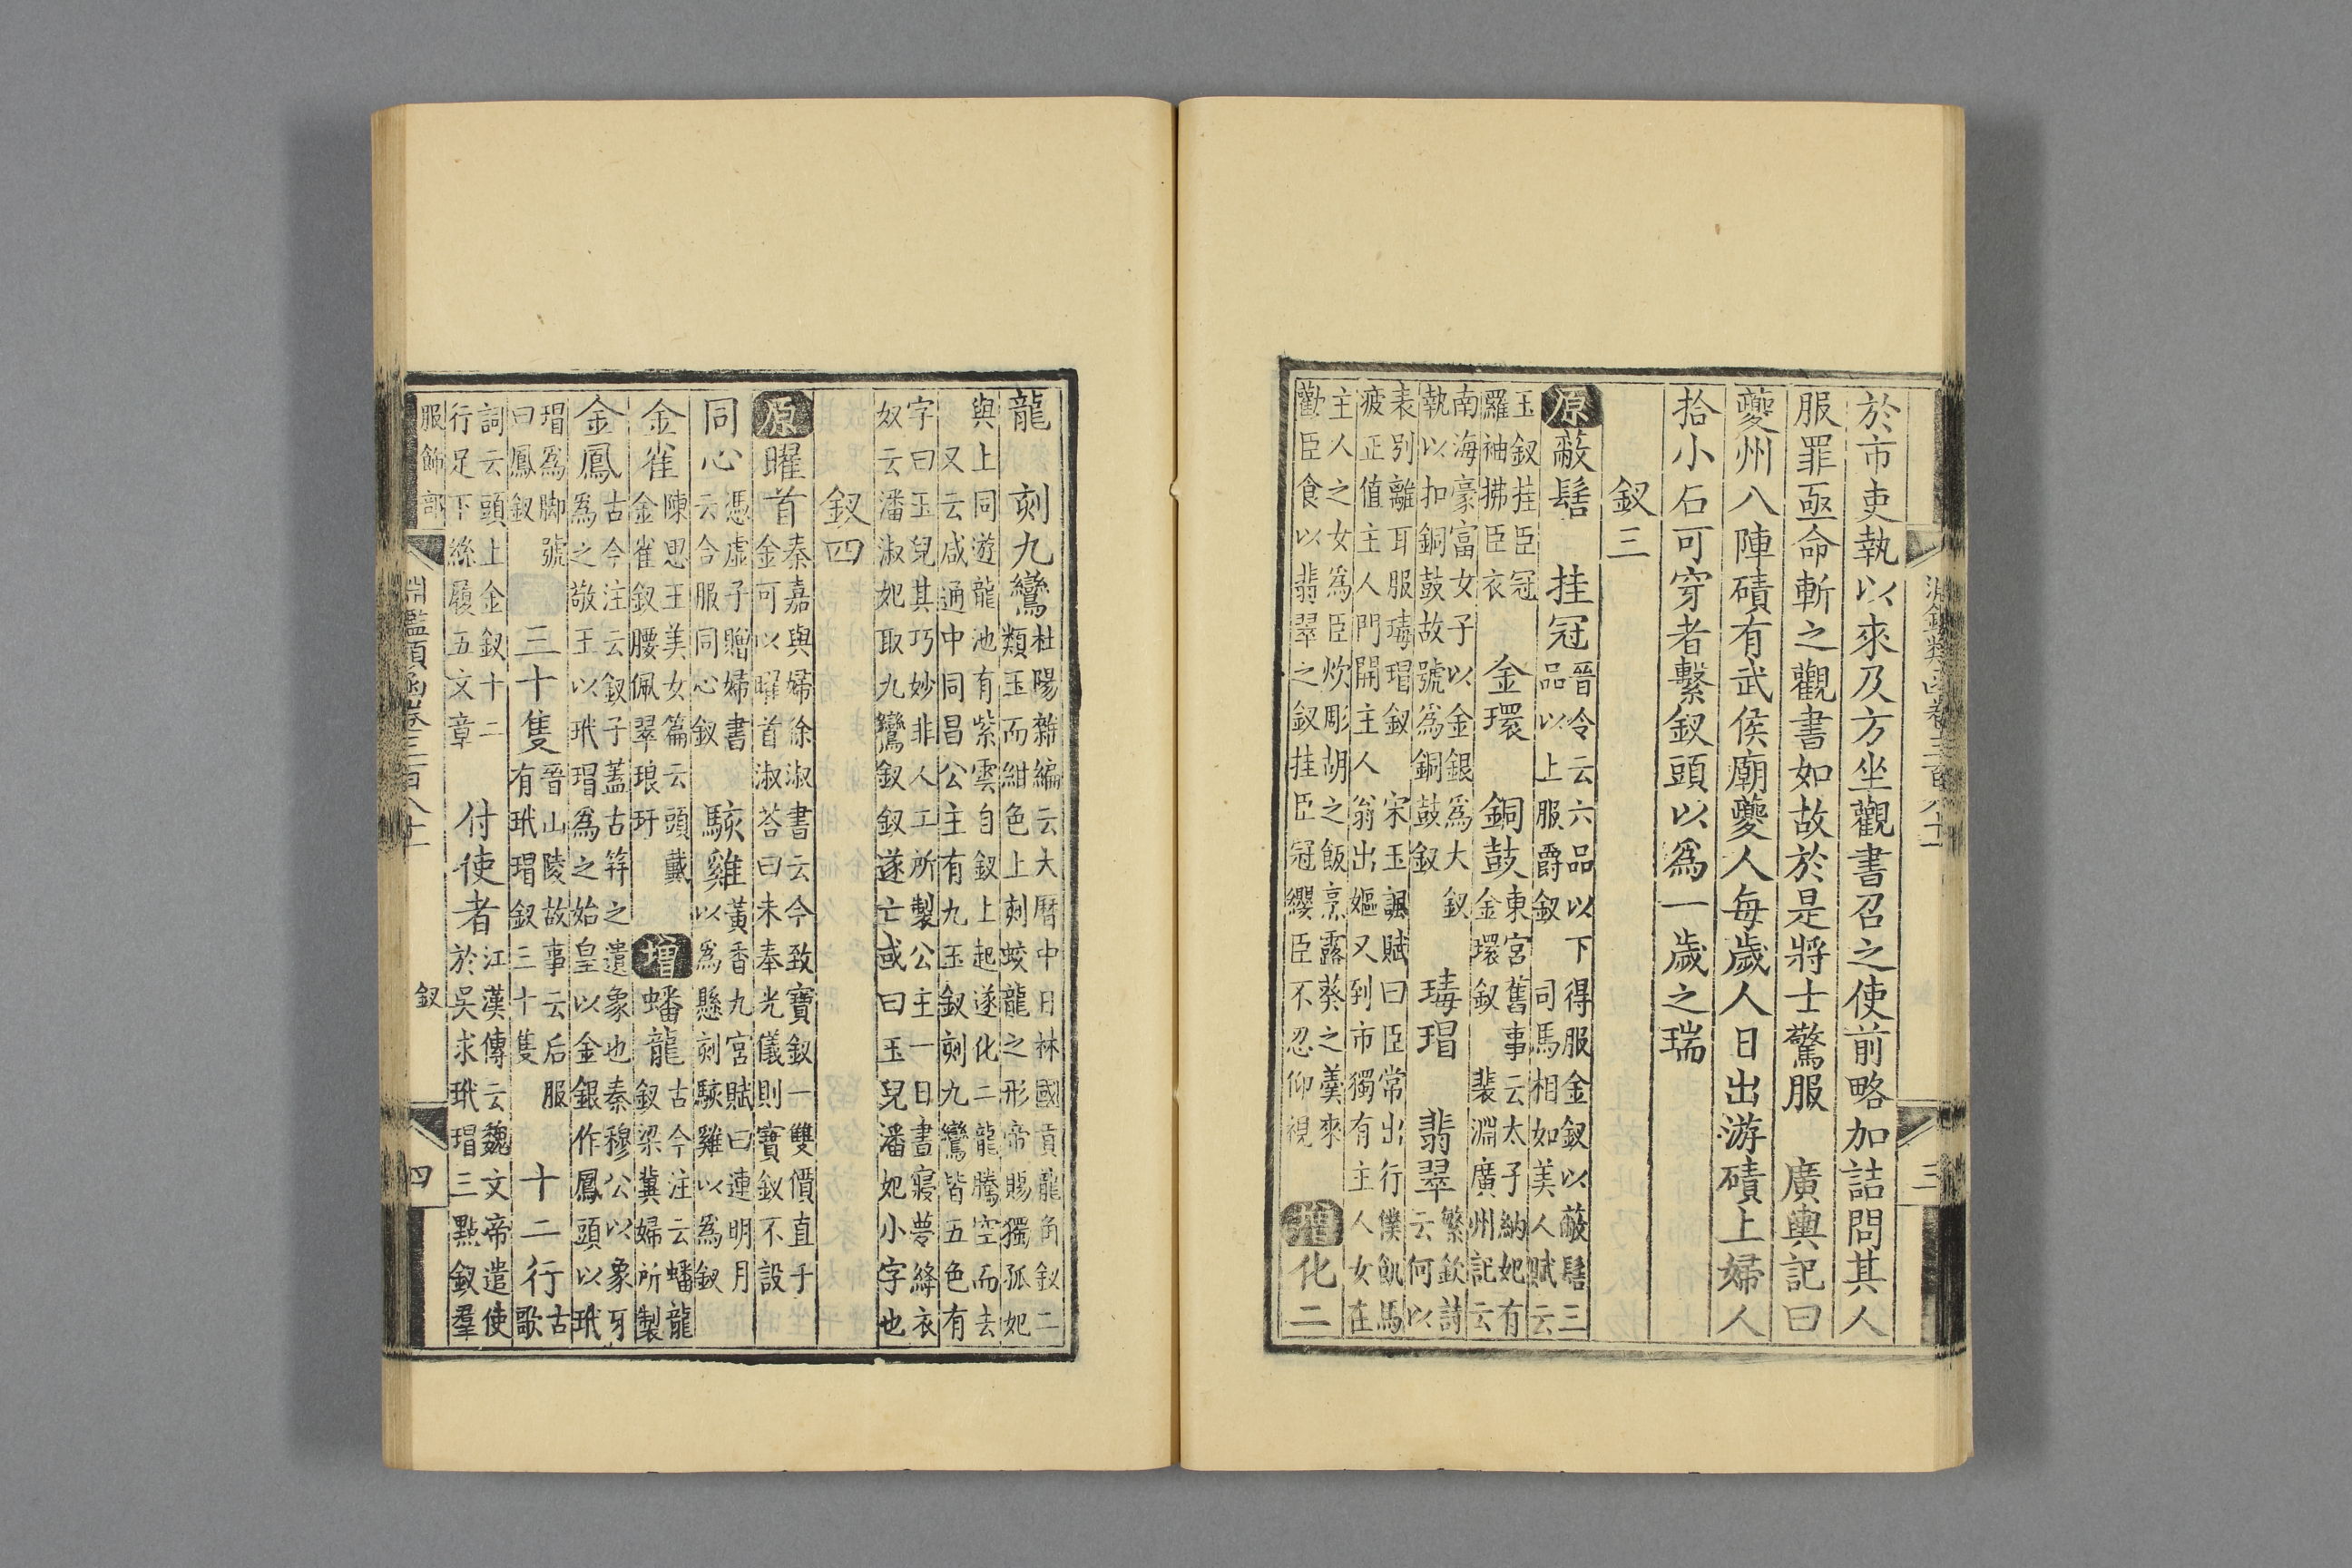 淵鑑類函卷三百八十一
三
於市吏執以來及方坐觀書召之使前略加詰問其人
服罪亟命斬之觀書如故於是將士驚服　廣輿記曰
夔州八陣磧有武侯廟夔人每歲人日出游磧上婦人
拾小石可穿者繫釵頭以爲一歲之瑞
釵三
原蔽髻　挂冠晉令云六品以下得服金釵以蔽髻三
品以上服爵釵　司馬相如美人賦云
玉釵挂臣冠
羅袖拂臣衣　金環　銅鼓東宮舊事云太子納妃有
金環釵　裴淵廣州記云
南海豪富女子以金銀爲大釵
執以扣銅鼓故號爲銅鼓釵　瑇瑁　翡翠繁欽詩
云何以
表別離耳服瑇瑁釵　宋玉諷賦曰臣常出行僕飢馬
疲正值主人門開主人翁出嫗又到市獨有主人女在
主人之女爲臣炊彫胡之飯烹露葵之羹來
勸臣食以翡翠之釵挂臣冠纓臣不忍仰視　增化二
龍　刻九鸞杜陽雜編云大曆中日林國貢龍角釵二
類玉而紺色上刻蛟龍之形帝賜獨孤妃
與上同遊龍池有紫雲自釵上起遂化二龍騰空而去
又云咸通中同昌公主有九玉釵刻九鸞皆五色有
字曰玉兒其巧妙非人工所製公主一日晝寢夢絳衣
奴云潘淑妃取九鸞釵釵遂亡或曰玉兒潘妃小字也
釵四
原曜首秦嘉與婦徐淑書云今致寶釵一雙價直千
金可以曜首淑荅曰未奉光儀則寶釵不設
同心馮虛子贈婦書
云合服同心釵　駭雞黃香九宮賦曰連明月
以爲懸刻駭雞以爲釵
金雀陳思王美女篇云頭戴
金雀釵腰佩翠琅玕　增蟠龍古今注云蟠龍
釵梁冀婦所製
金鳳古今注云釵子蓋古笄之遺象也秦穆公以象牙
爲之敬王以玳瑁爲之始皇以金銀作鳳頭以玳
瑁爲脚號
曰鳳釵　三十隻晉山陵故事云后服
有玳瑁釵三十隻　十二行古
歌
詞云頭上金釵十二
行足下絲履五文章　付使者江漢傳云魏文帝遣使
於吳求玳瑁三點釵羣
服飾部
淵鑑類函卷三百八十一
釵
四